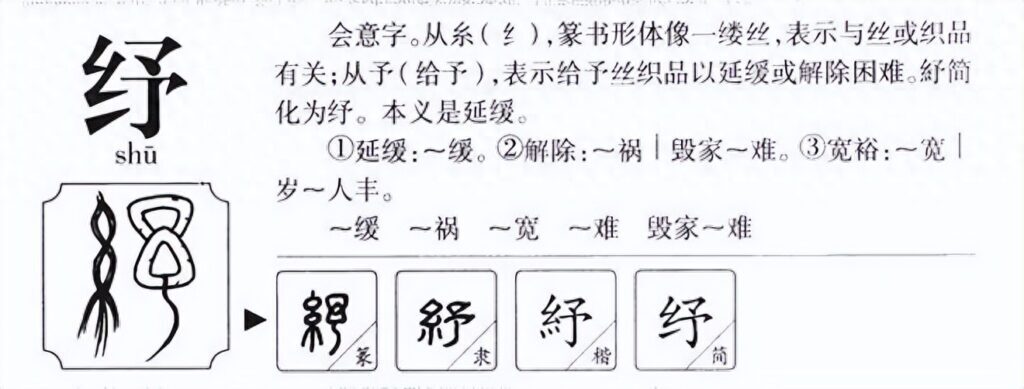 纾
shū
会意字。从糸(纟),篆书形体像一缕丝,表示与丝或织品
有关;从予(给予),表示给予丝织品以延缓或解除困难。紓简
化为纾。本义是延缓。
①延缓:~缓。②解除:~祸|毁家~难。③宽裕:~宽|
岁~人丰。
~缓 ~祸 ~宽 ~难 毁家~难
紓 篆
紓 隶
紓 楷
纾 简